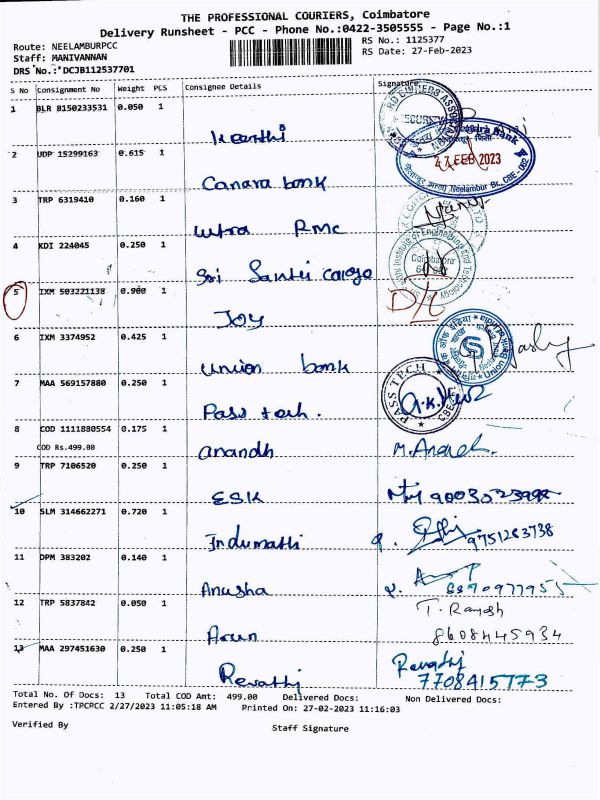 THE PROFESSIONAL COURIERS, Coimbatore
Delivery Runsheet - PCC - Phone No.:0422-3505555 - Page No.:1
Route: NEELAMBURPCC
RS No.: 1125377
Staff: MANIVANNAN
RS Date: 27-Feb-2023
DRS No.: DCJB112537701
S No Consignment No Weight PCS Consignee Details Signature
1 BLR 8150233531 0.050 1
Keerthi
SECURITY
2 UDP 15299163 0.615 1
27 FEB 2023
Neelambur Br.
Canara bank
3 TRP 6319410 0.160 1
RMC
4 KDI 224045 0.250 1
Institute of Engineering and Technology
Coimbatore
Sri Santhi
5 IXM 503221138 0.900 1
D/L
JOY
6 IXM 3374952 0.425 1
Union bank
7 MAA 569157880 0.250 1
PASS TECH
Pass tech.
8 COD 1111880554 0.175 1
COD Rs.499.00
anandh
9 TRP 7106520 0.250 1
ESK
10 SLM 314662271 0.720 1
Indumathi 9751283738
11 DPM 383202 0.140 1
Anusha
12 TRP 5837842 0.050 1
Arun 8608445934
13 MAA 297451630 0.250 1
Revathi
7708415773
Total No. Of Docs: 13 Total COD Amt: 499.00 Delivered Docs: Non Delivered Docs:
Entered By :TPCPCC 2/27/2023 11:05:18 AM Printed On: 27-02-2023 11:16:03
Verified By Staff Signature